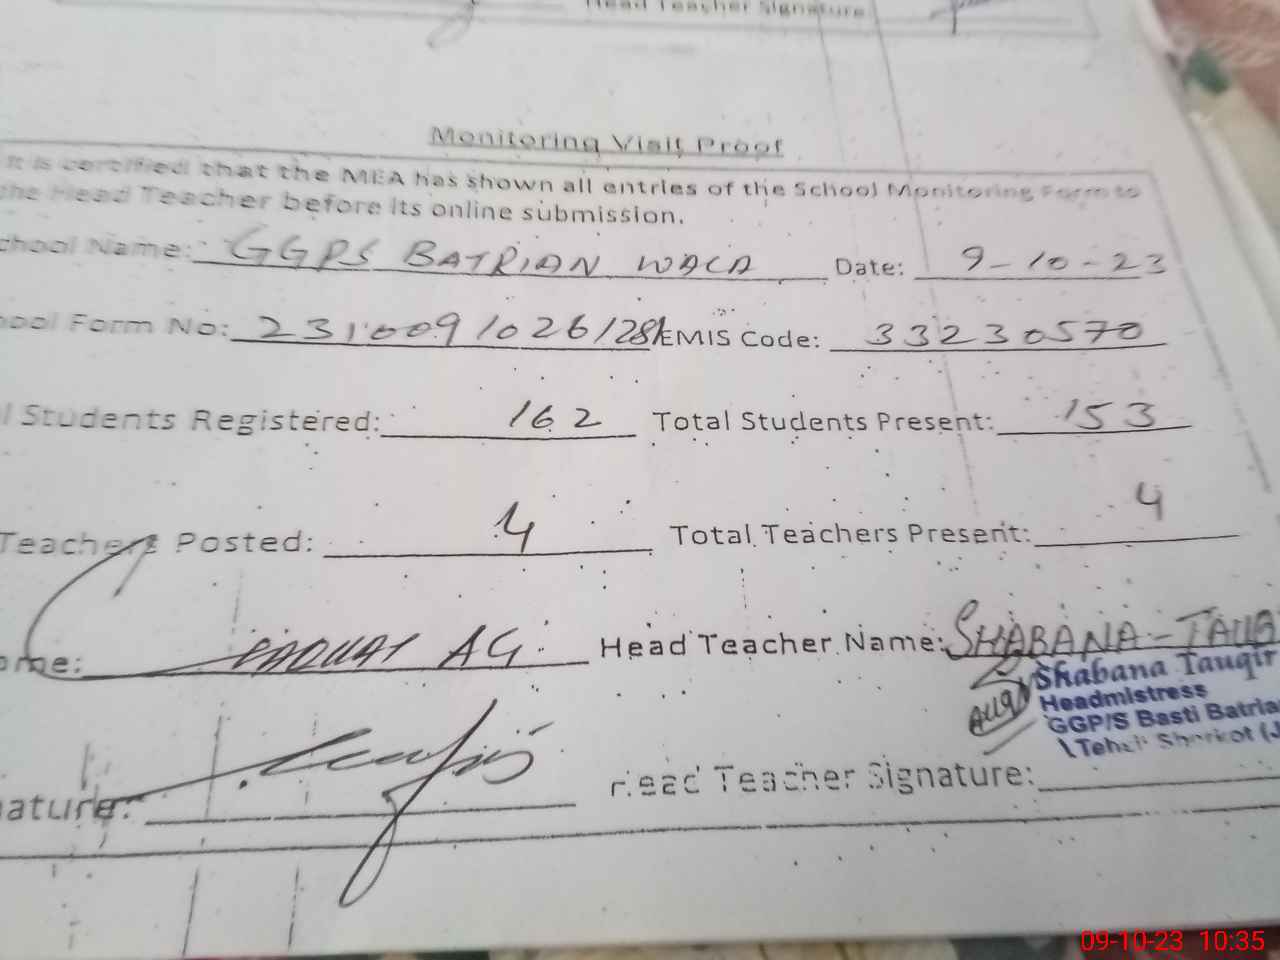 Head Teacher Signature
Monitoring Visit Proof
It is certified that the MEA has shown all entries of the School Monitoring Form to
the Head Teacher before its online submission.
chool Name: GGPS BATRIAN WALA Date: 9-10-23
ool Form No: 23100910261281 EMIS Code: 33230570
l Students Registered: 162 Total Students Present: 153
Teachers Posted: 4 Total Teachers Present: 4
ame: Head Teacher Name: SHABANA-TAUQ
Shabana Tauqir
Headmistress
GGP/S Basti Batria
Tehsil Shorkot (J
nature: Head Teacher Signature:
09-10-23 10:35